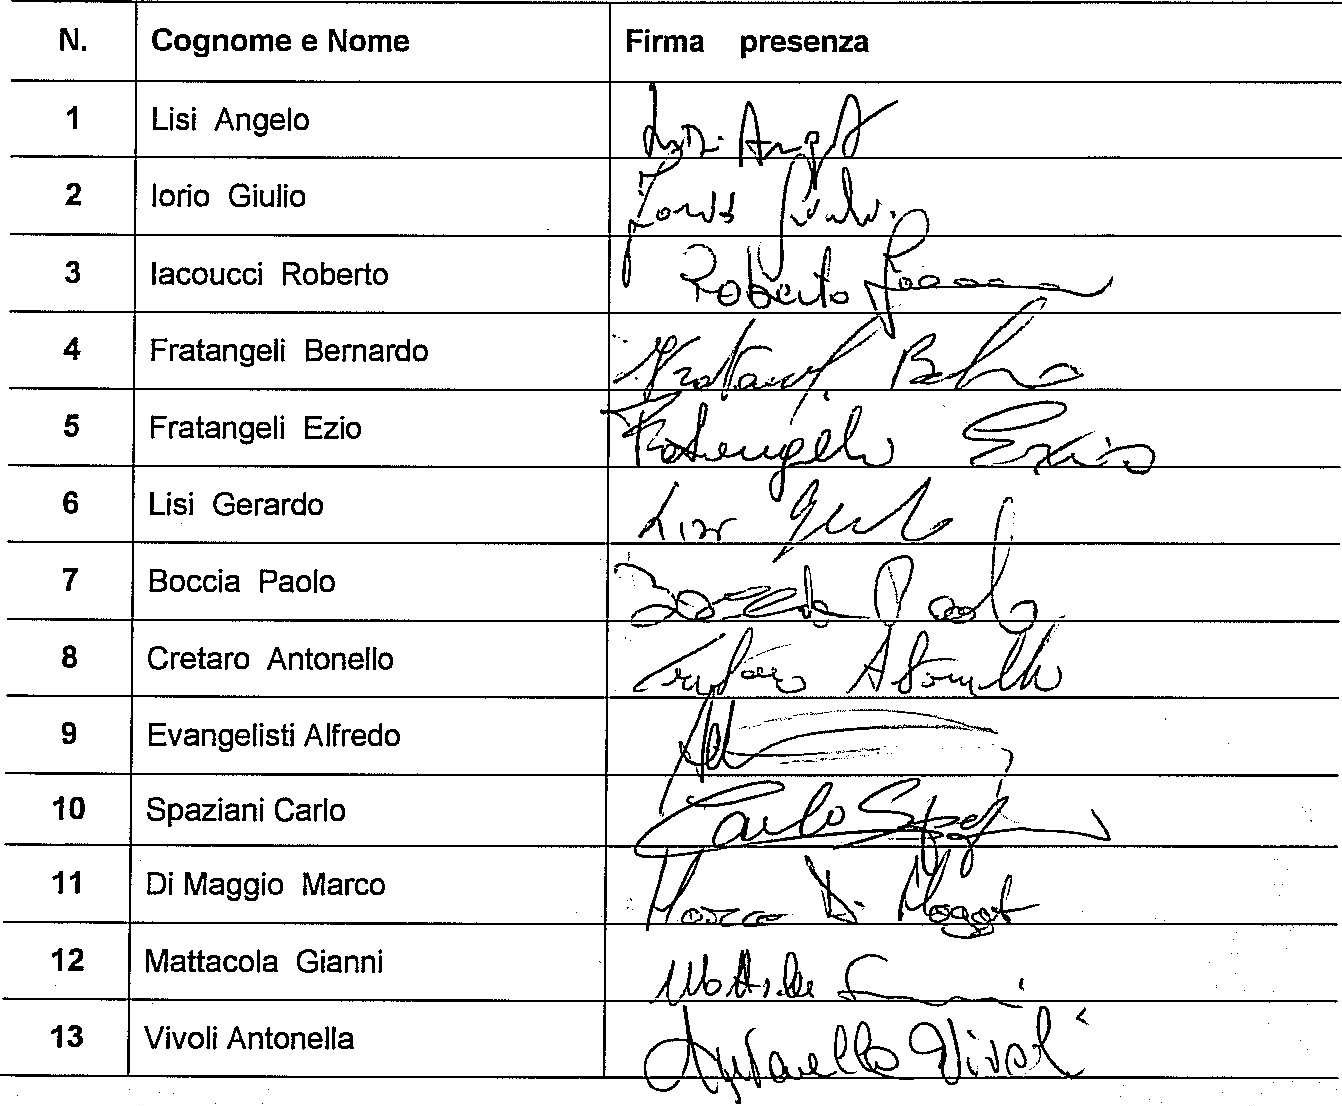 N. Cognome e Nome Firma presenza
1 Lisi Angelo Lisi Angelo
2 Iorio Giulio Iorio Giulio
3 Iacoucci Roberto Roberto
4 Fratangeli Bernardo
5 Fratangeli Ezio Fratangeli Ezio
6 Lisi Gerardo Lisi
7 Boccia Paolo Boccia Paolo
8 Cretaro Antonello Cretaro Antonello
9 Evangelisti Alfredo
10 Spaziani Carlo Carlo
11 Di Maggio Marco Marco Di Maggio
12 Mattacola Gianni
13 Vivoli Antonella Antonella Vivoli